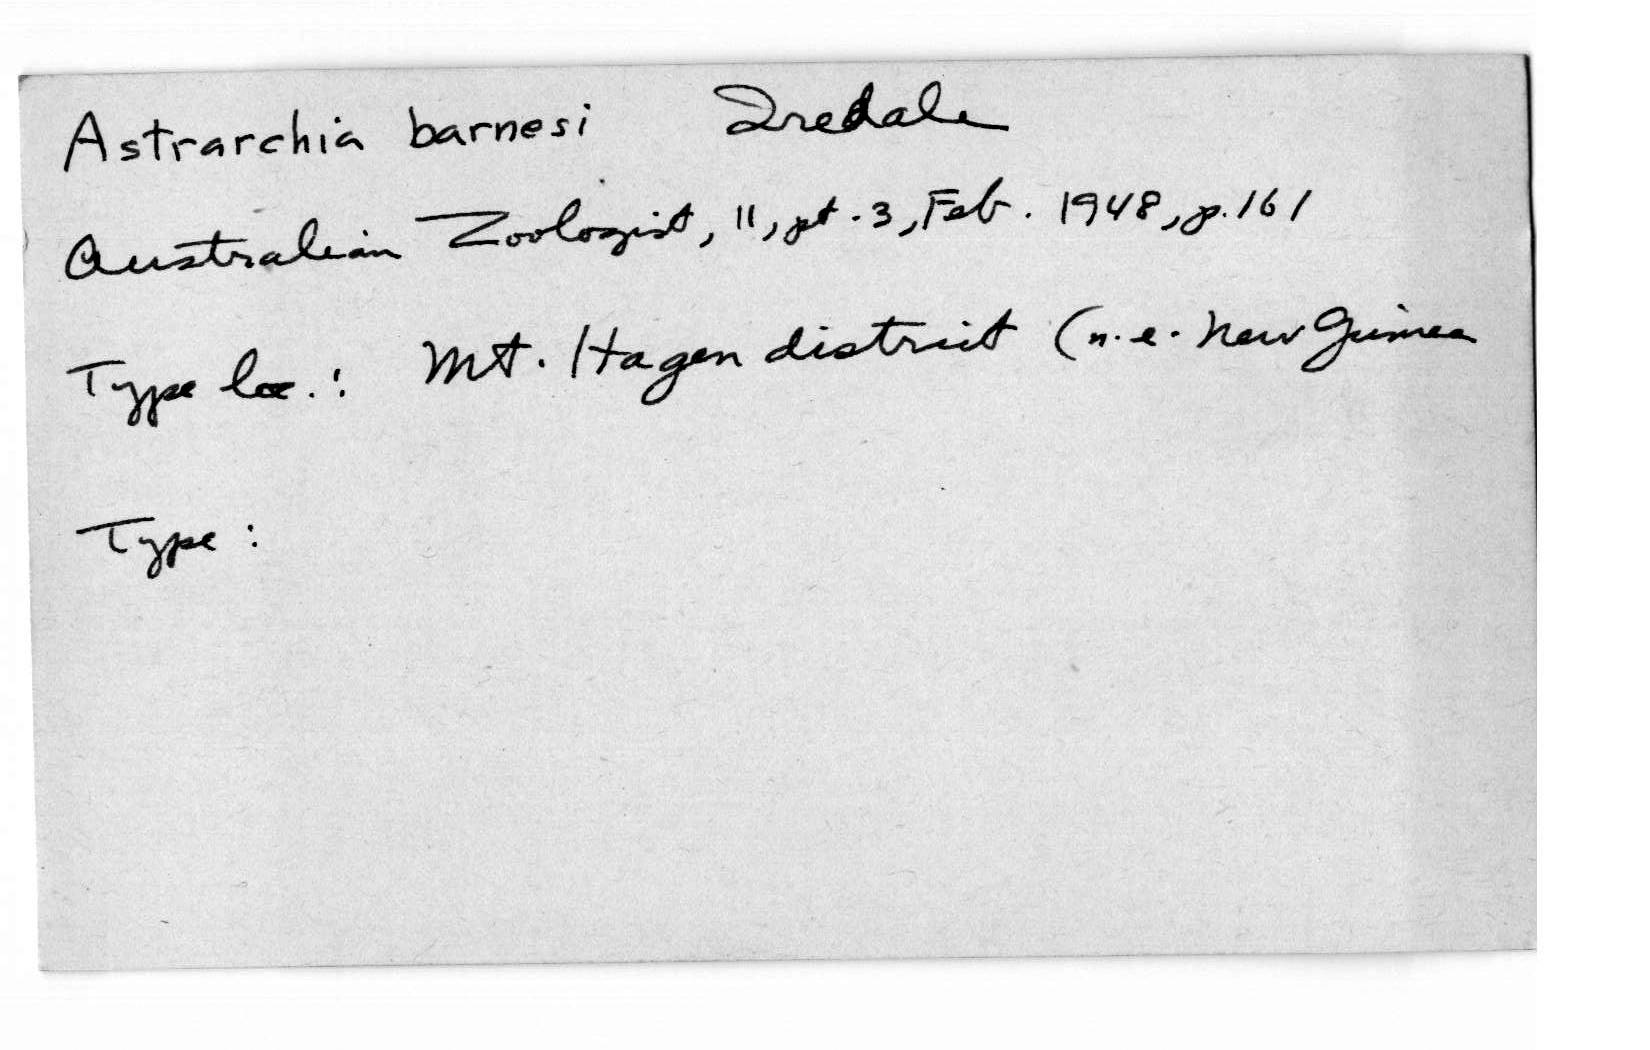 Astrarchia barnesi Iredale
Australian Zoologist, 11, pt. 3, Feb. 1948, p. 161
Type loc.: Mt. Hagen district (n.e. New Guinea
Type: